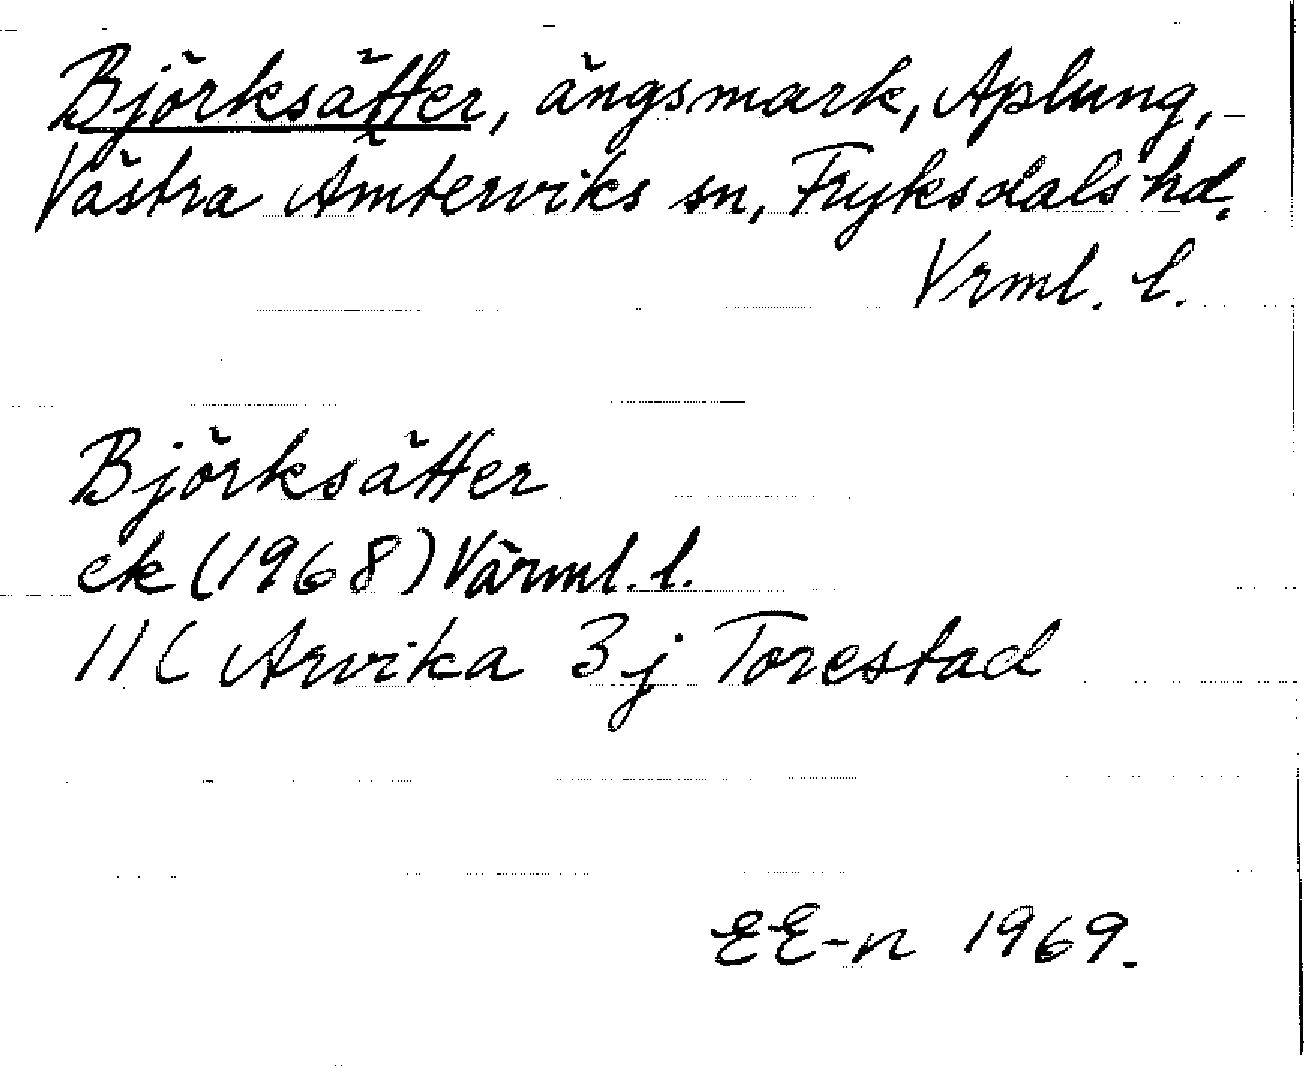 Björksätter, ängsmark, Aplung,
Västra Ämterviks sn, Fryksdals hd.
Vrml. l.
Björksätter
ek (1968) Värml. l.
11C Arvika 3j Torestad
EE-n 1969.